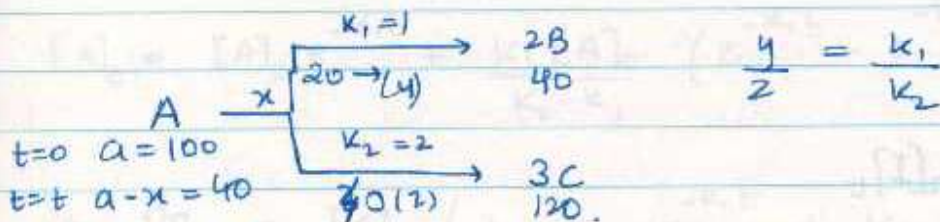 k₁ = 1
20 → (y) 2B
40
y/z = k₁/k₂
A x
t=0 a = 100
k₂ = 2
t=t a-x = 40
40(z) 3C
120.